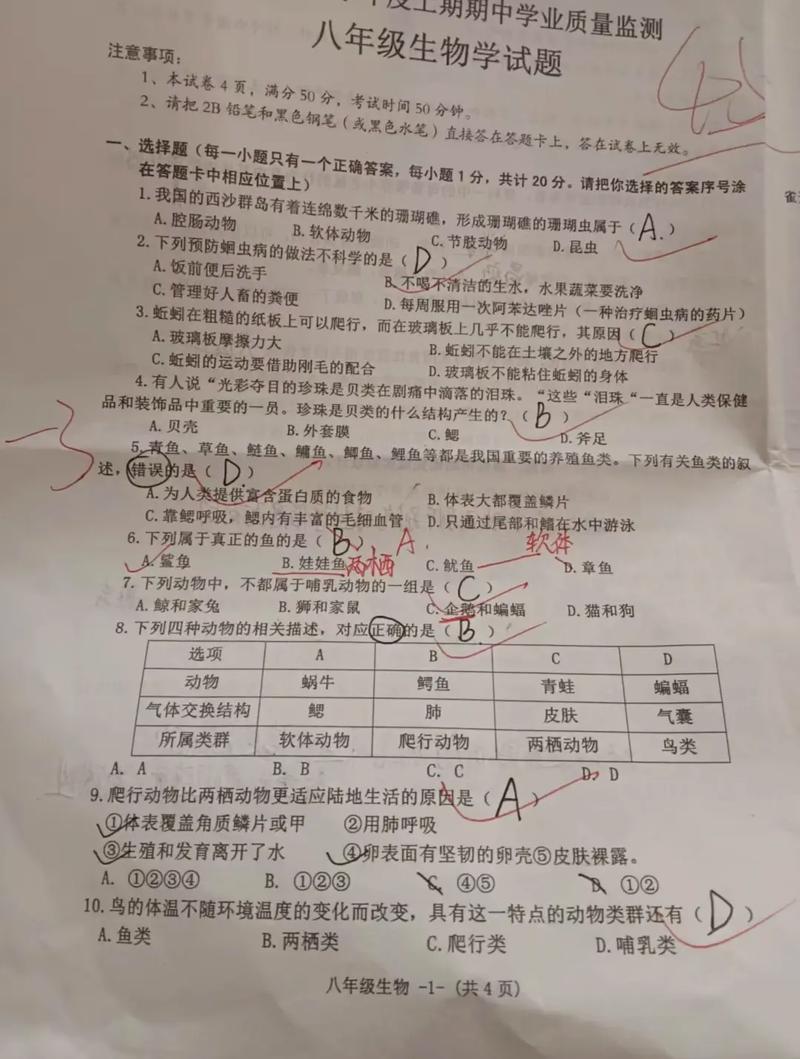 年度上期期中学业质量监测
八年级生物学试题
注意事项：
1、本试卷4页，满分50分，考试时间50分钟。
2、请把2B铅笔和黑色钢笔（或黑色水笔）直接答在答题卡上，答在试卷上无效。
一、选择题（每一小题只有一个正确答案，每小题1分，共计20分。请把你选择的答案序号涂
在答题卡中相应位置上）
1.我国的西沙群岛有着连绵数千米的珊瑚礁，形成珊瑚礁的珊瑚虫属于（A.）
A.腔肠动物 B.软体动物 C.节肢动物 D.昆虫
2.下列预防蛔虫病的做法不科学的是（D）
A.饭前便后洗手 B.不喝不清洁的生水，水果蔬菜要洗净
C.管理好人畜的粪便 D.每周服用一次阿苯达唑片（一种治疗蛔虫病的药片）
3.蚯蚓在粗糙的纸板上可以爬行，而在玻璃板上几乎不能爬行，其原因（C）
A.玻璃板摩擦力大 B.蚯蚓不能在土壤之外的地方爬行
C.蚯蚓的运动要借助刚毛的配合 D.玻璃板不能粘住蚯蚓的身体
4.有人说“光彩夺目的珍珠是贝类在剧痛中滴落的泪珠。“这些“泪珠“一直是人类保健
品和装饰品中重要的一员。珍珠是贝类的什么结构产生的？（B）
A.贝壳 B.外套膜 C.鳃 D.斧足
-3
5.青鱼、草鱼、鲢鱼、鳙鱼、鲫鱼、鲤鱼等都是我国重要的养殖鱼类。下列有关鱼类的叙
述，错误的是（D.）
A.为人类提供富含蛋白质的食物 B.体表大都覆盖鳞片
C.靠鳃呼吸，鳃内有丰富的毛细血管 D.只通过尾部和鳍在水中游泳
6.下列属于真正的鱼的是（B） A. 软体
A.鲨鱼 B.娃娃鱼 两栖 C.鱿鱼 D.章鱼
7.下列动物中，不都属于哺乳动物的一组是（C）
A.鲸和家兔 B.狮和家鼠 C.企鹅和蝙蝠 D.猫和狗
8.下列四种动物的相关描述，对应正确的是（B.）
选项 A B C D
动物 蜗牛 鳄鱼 青蛙 蝙蝠
气体交换结构 鳃 肺 皮肤 气囊
所属类群 软体动物 爬行动物 两栖动物 鸟类
A. A B. B C. C D. D
9.爬行动物比两栖动物更适应陆地生活的原因是（A）
①体表覆盖角质鳞片或甲 ②用肺呼吸
③生殖和发育离开了水 ④卵表面有坚韧的卵壳⑤皮肤裸露。
A. ①②③④ B. ①②③ C. ④⑤ D. ①②
10.鸟的体温不随环境温度的变化而改变，具有这一特点的动物类群还有（D）
A.鱼类 B.两栖类 C.爬行类 D.哺乳类
八年级生物 -1-（共4页）